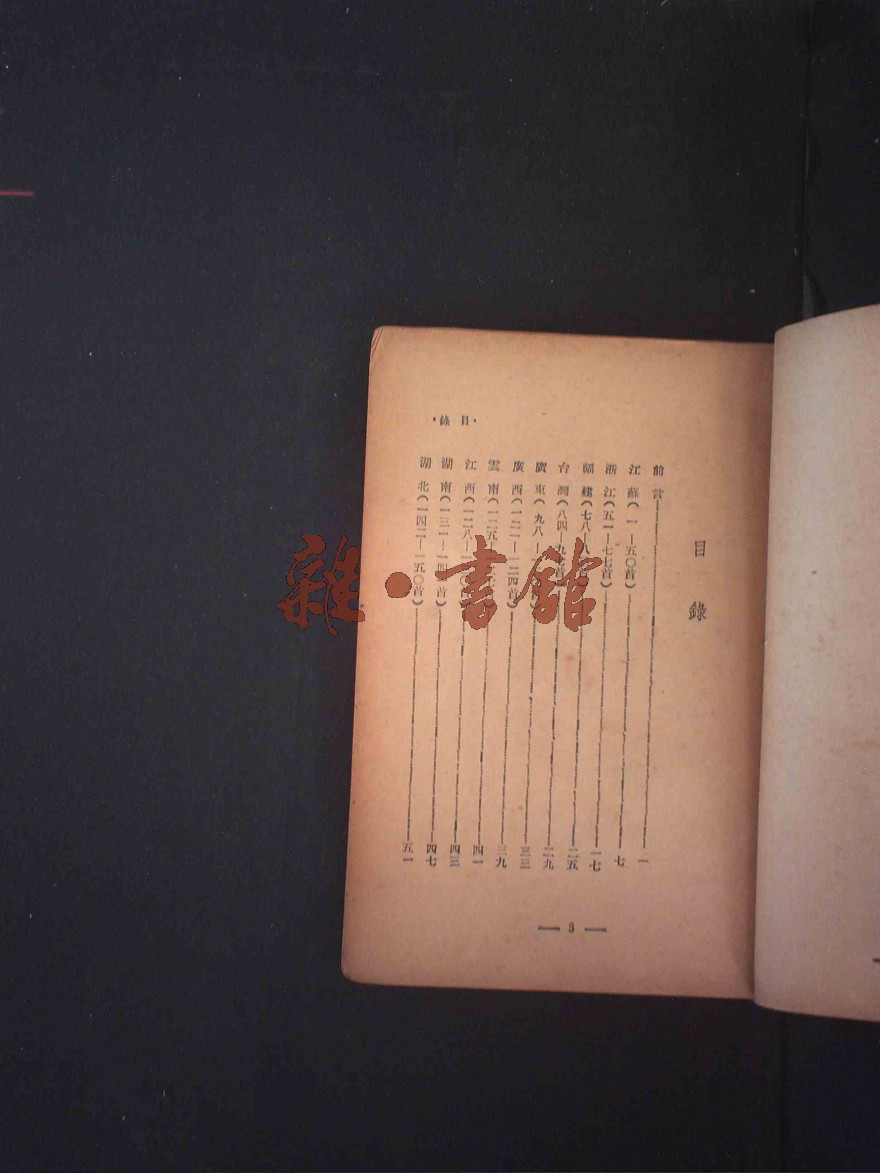 ·目錄·
目錄
前言 一
江蘇(一—五〇首) 七
浙江(五一—七七首) 一七
福建(七八— 二五
台灣(八四—九 二九
廣東(九八— 三三
廣西(一二一—一二四首) 三九
雲南(一二五 四一
江西(一二八— 四三
湖南(一三一—一四 首) 四七
湖北(一四二—一五〇首) 五一
— 3 —
雜·書館